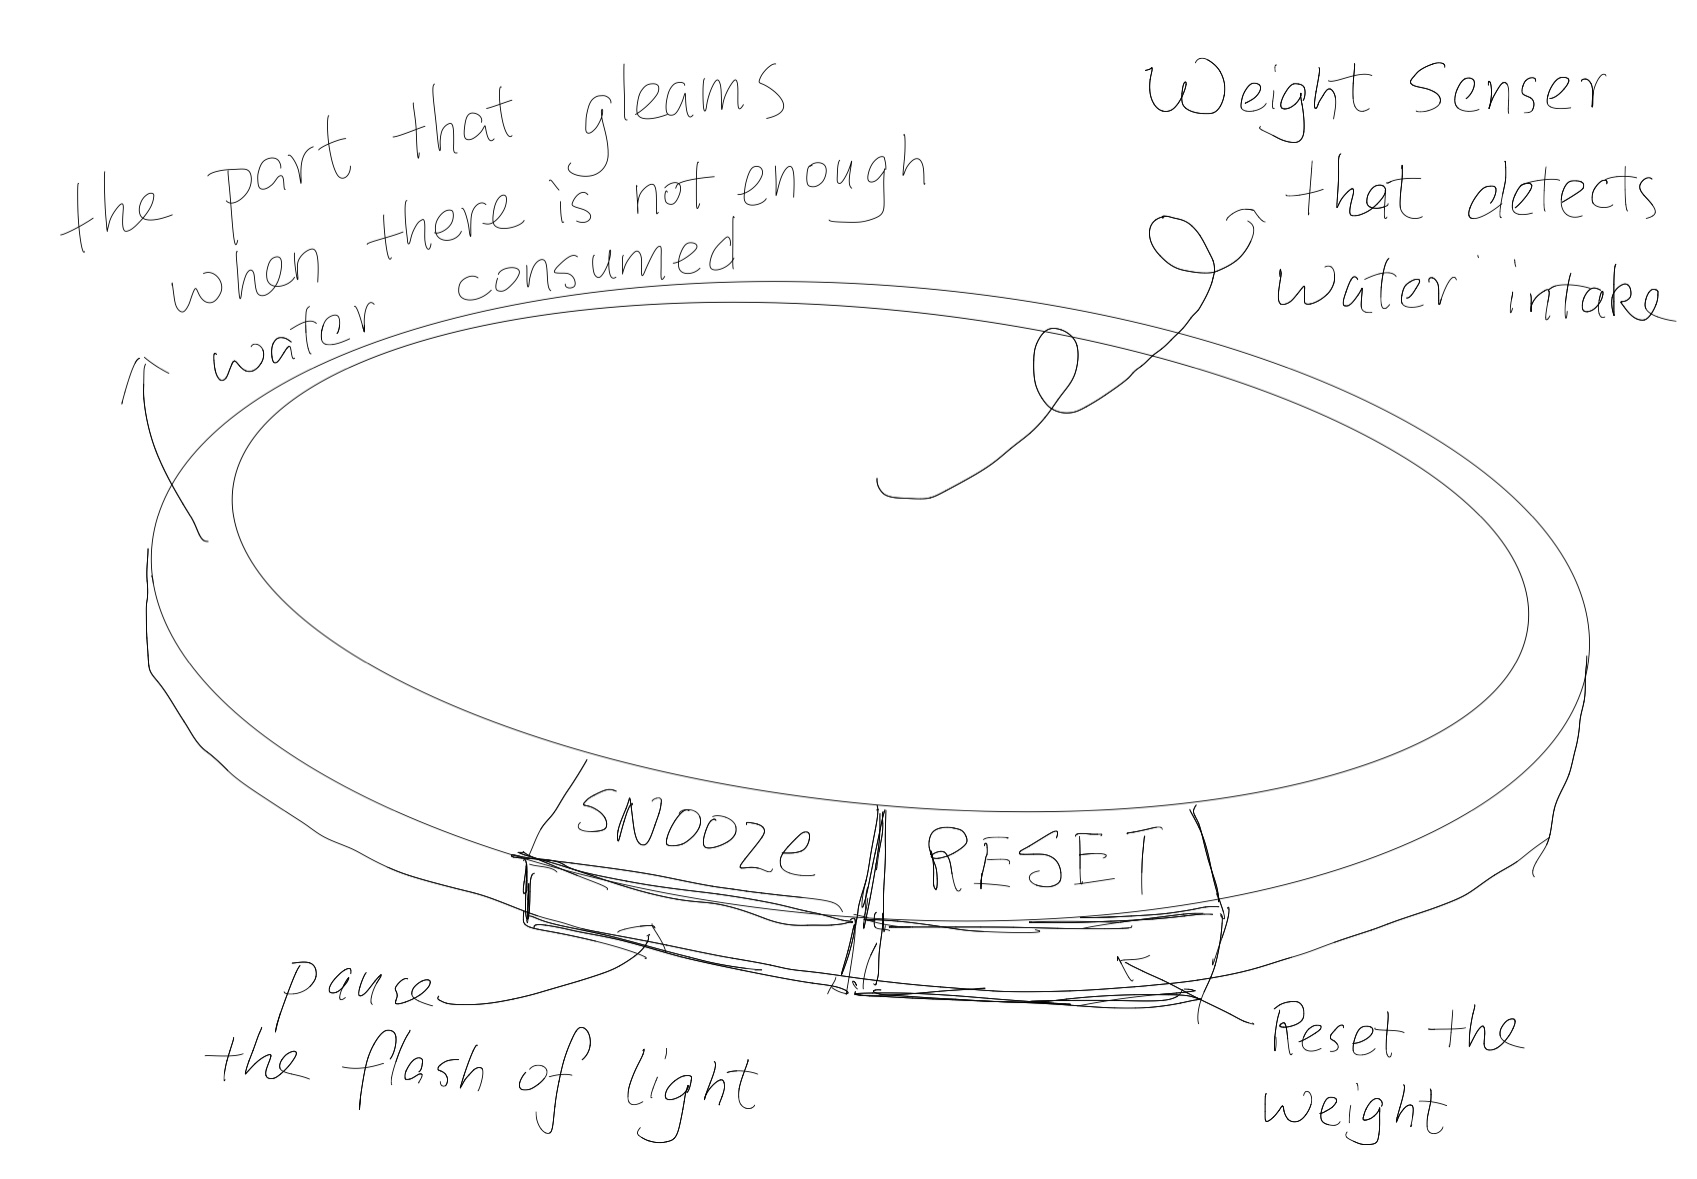 the part that gleams
when there is not enough
water consumed
Weight Senser
that detects
water intake
SNOOZe
RESET
pause
the flash of light
Reset the
weight